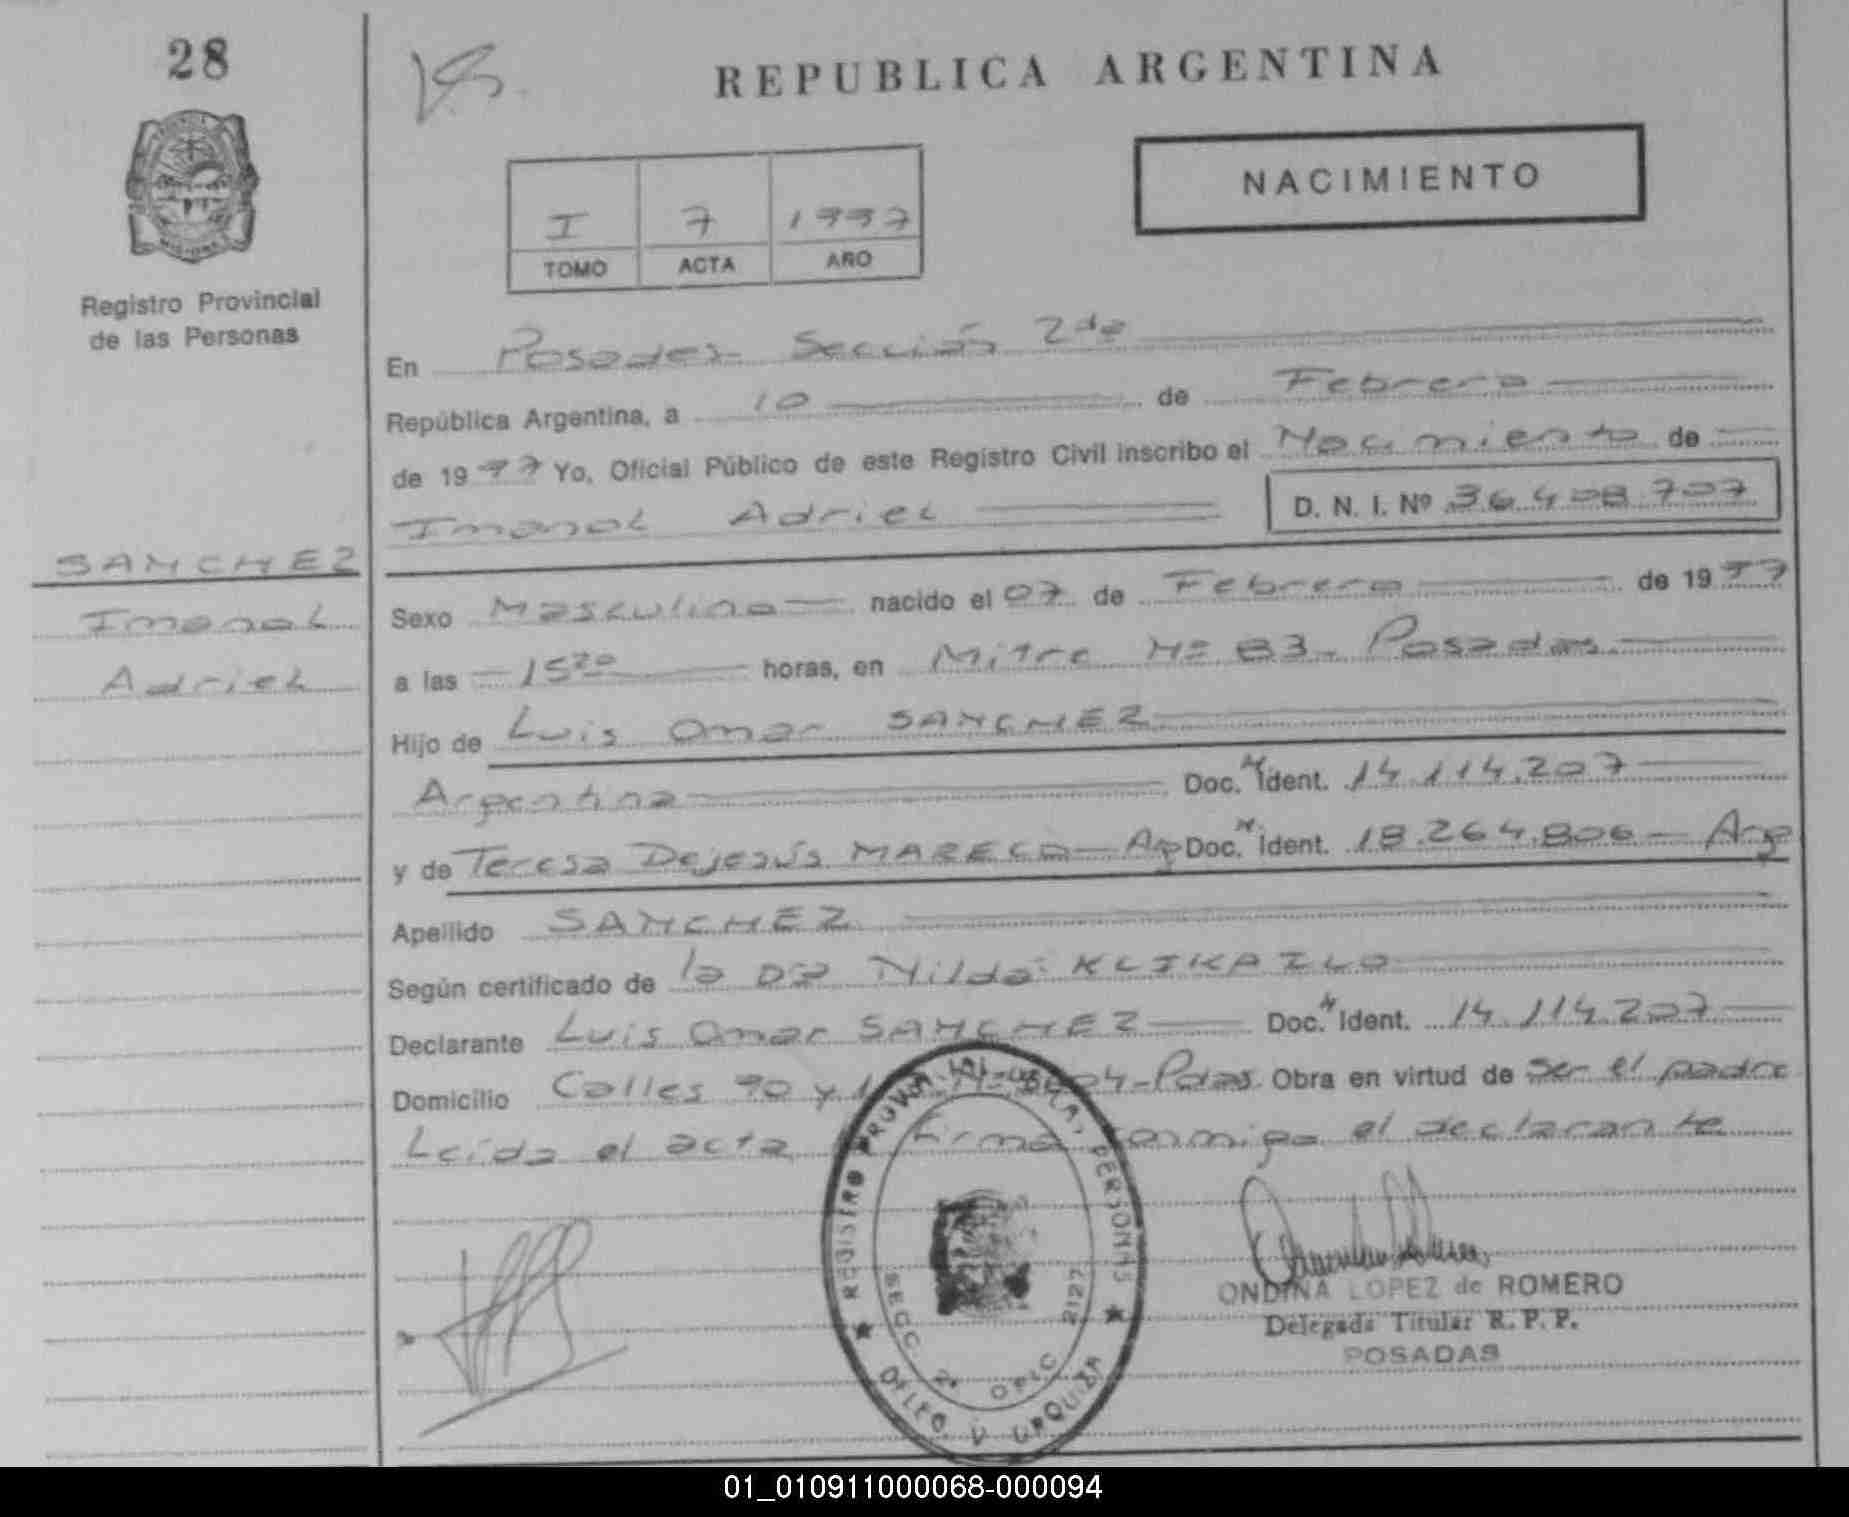 28
REPUBLICA ARGENTINA
NACIMIENTO
I 7 1997
TOMO ACTA AÑO
Registro Provincial
de las Personas
En Posadas Sección 2da
República Argentina, a 10 de Febrero
de 1997 Yo, Oficial Público de este Registro Civil inscribo el Nacimiento de
Imanol Adriel D. N. I. Nº 36.408.707
SANCHEZ
Imanol
Adriel
Sexo Masculino nacido el 07 de Febrero de 1997
a las 15 horas, en Mitre Nº 83 - Posadas
Hijo de Luis Omar SANCHEZ
Argentina Doc. N Ident. 14.114.207
y de Teresa Dejesús MARECO - Arg Doc. N Ident. 18.264.806 - Arg
Apellido SANCHEZ
Según certificado de la Dra Nilda KLIKAILO
Declarante Luis Omar SANCHEZ Doc. N Ident. 14.114.207
Domicilio Calles 90 y - Pdas. Obra en virtud de ser el padre
Leída el acta firma conmigo el declarante
REGISTRO PROVINCIAL DE LAS PERSONAS
SECC. 2ª OFIC 2127
V URQUIZA
ONDINA LOPEZ de ROMERO
Delegada Titular R. P. P.
POSADAS
01_010911000068-000094